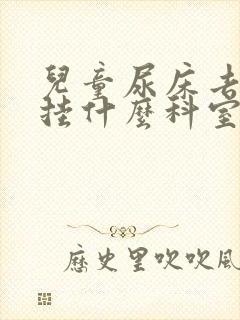 兒童尿床去
挂什麼科室
歷史里吹吹風